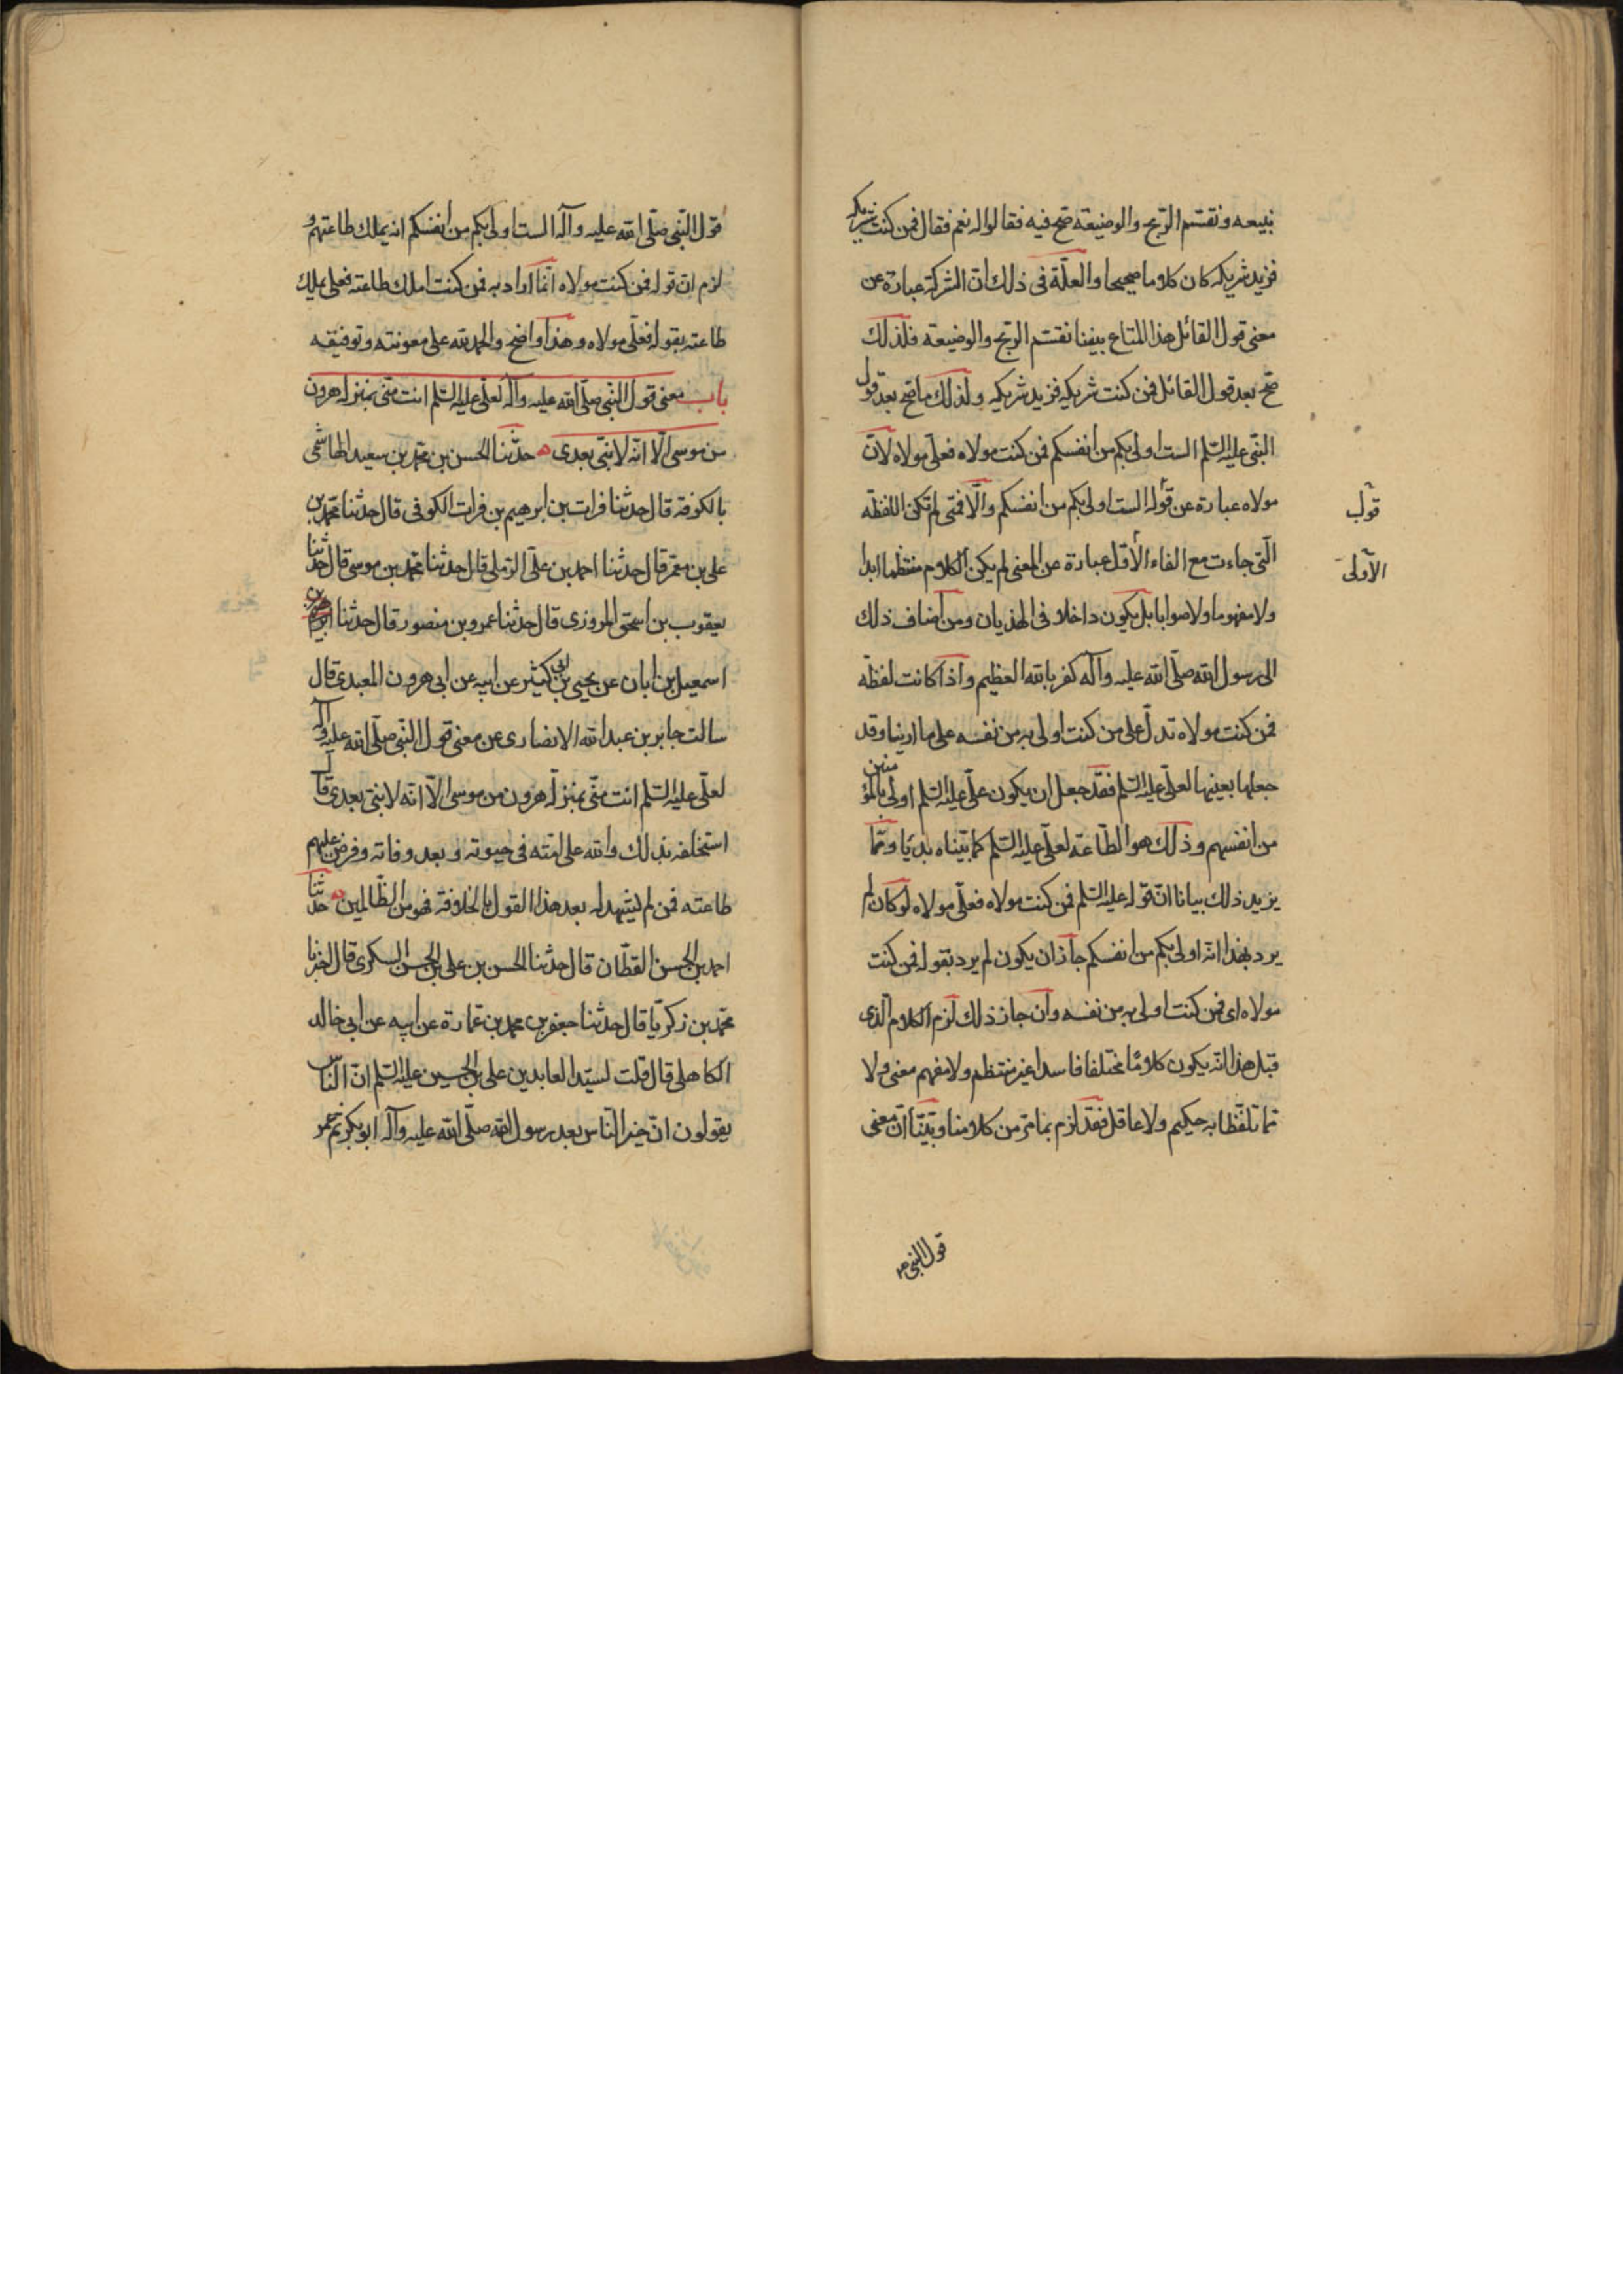 نبيعه ونقتسم الربح والوضيعة صح فيه فقالوا له نعم فقال فمن كنت شريكه
فزيد شريكه كان كلاما صحيحا والعلّة فى ذلك انّ الشركة عبارة عن
معنى قول القائل هذا المتاع بيننا نقتسم الربح والوضيعة فلذلك
صحّ بعد قول القائل فمن كنت شريكه فزيد شريكه وكذلك ما صحّ بعد قول
النّبى عليه السّلم الست اولى بكم من انفسكم فمن كنت مولاه فعلّى مولاه لانّ
مولاه عبارة عن قوله الست اولى بكم من انفسكم والّا فمتى لم تكن اللفظة
قول
الّتى جاءت مع الفاء الأوّل عبارة عن المعنى لم يكن الكلام منتظما ابدا
الأولى
ولا مفهوما ولا صوابا بل يكون داخلا فى الهذيان ومن اضاف ذلك
الى رسول الله صلّى الله عليه وآله كفر بالله العظيم واذا كانت لفظة
فمن كنت مولاه تدلّ على من كنت اولى به من نفسه على ما ارينا وقد
جعلها بعينها لعلّى عليه السّلم فقد جعل ان يكون علّى عليه السّلم اولى بالمؤمنين
من انفسهم وذلك هو الطّاعة لعلّى عليه السّلم كما بيّناه بديّا وممّا
يزيد ذلك بيانا انّ قوله عليه السّلم فمن كنت مولاه فعلّى مولاه لو كان لم
يرد بهذا انّه اولى بكم من انفسكم جاز ان يكون لم يرد بقوله فمن كنت
مولاه اى فمن كنت اولى به من نفسه وان جاز ذلك لزم الكلام الّذى
قبل هذا انّه يكون كلامًا مختلفا فاسدا غير منتظم ولا مفهم معنى ولا
ممّا تلفّظ به حكيم ولا عاقل فقد لزم بما مرّ من كلامنا وبيّنّا انّ معنى
قول النبى ص
قول النّبى صلّى الله عليه وآله الست اولى بكم من انفسكم انه يملك طاعتهم و
لزم انّ قوله فمن كنت مولاه انّما اراد به فمن كنت املك طاعته فعلى يملك
طاعته بقوله فعلّى مولاه وهذا واضح والحمد لله على معونته وتوفيقه
باب معنى قول النّبى صلّى الله عليه وآله لعلّى عليه السّلم انت منّى بمنزله هرون
من موسى الّا انّه لا نبىّ بعدى ه حدّثنا الحسن بن محمّد بن سعيد الهاشمى
بالكوفة قال حدثنا فرات بن ابرهيم بن فرات الكوفى قال حدثنا محمّد بن
على بن معمّر قال حدثنا احمد بن علّى الرّملى قال حدثنا محمّد بن موسى قال حدثنا
يعقوب بن اسحق المروزى قال حدثنا عمرو بن منصور قال حدثنا
اسمعيل بن ابان عن يحيى بن ابى كثير عن ابيه عن ابى هرون العبدى قال
سالت جابر بن عبد الله الانصارى عن معنى قول النّبى صلّى الله عليه وآله
لعلّى عليه السّلم انت منّى بمنزلة هرون من موسى الّا انّه لا نبىّ بعدى قال
استخلفه بذلك والله على امّته فى حيوته وبعد وفاته وفرض عليهم
طاعته فمن لم يشهد له بعد هذا القول بالخلافة فهو من الظّالمين ه حدّثنا
احمد بن الحسن القطّان قال حدثنا الحسن بن على بن الحسن السكرى قال اخبرنا
محمّد بن زكريّا قال حدثنا جعفر بن محمد بن عمارة عن ابيه عن ابى خالد
الكاهلى قال قلت لسيّد العابدين على بن الحسين عليه السّلم انّ النّاس
يقولون انّ خير النّاس بعد رسول الله صلّى الله عليه وآله ابو بكر ثم عمر